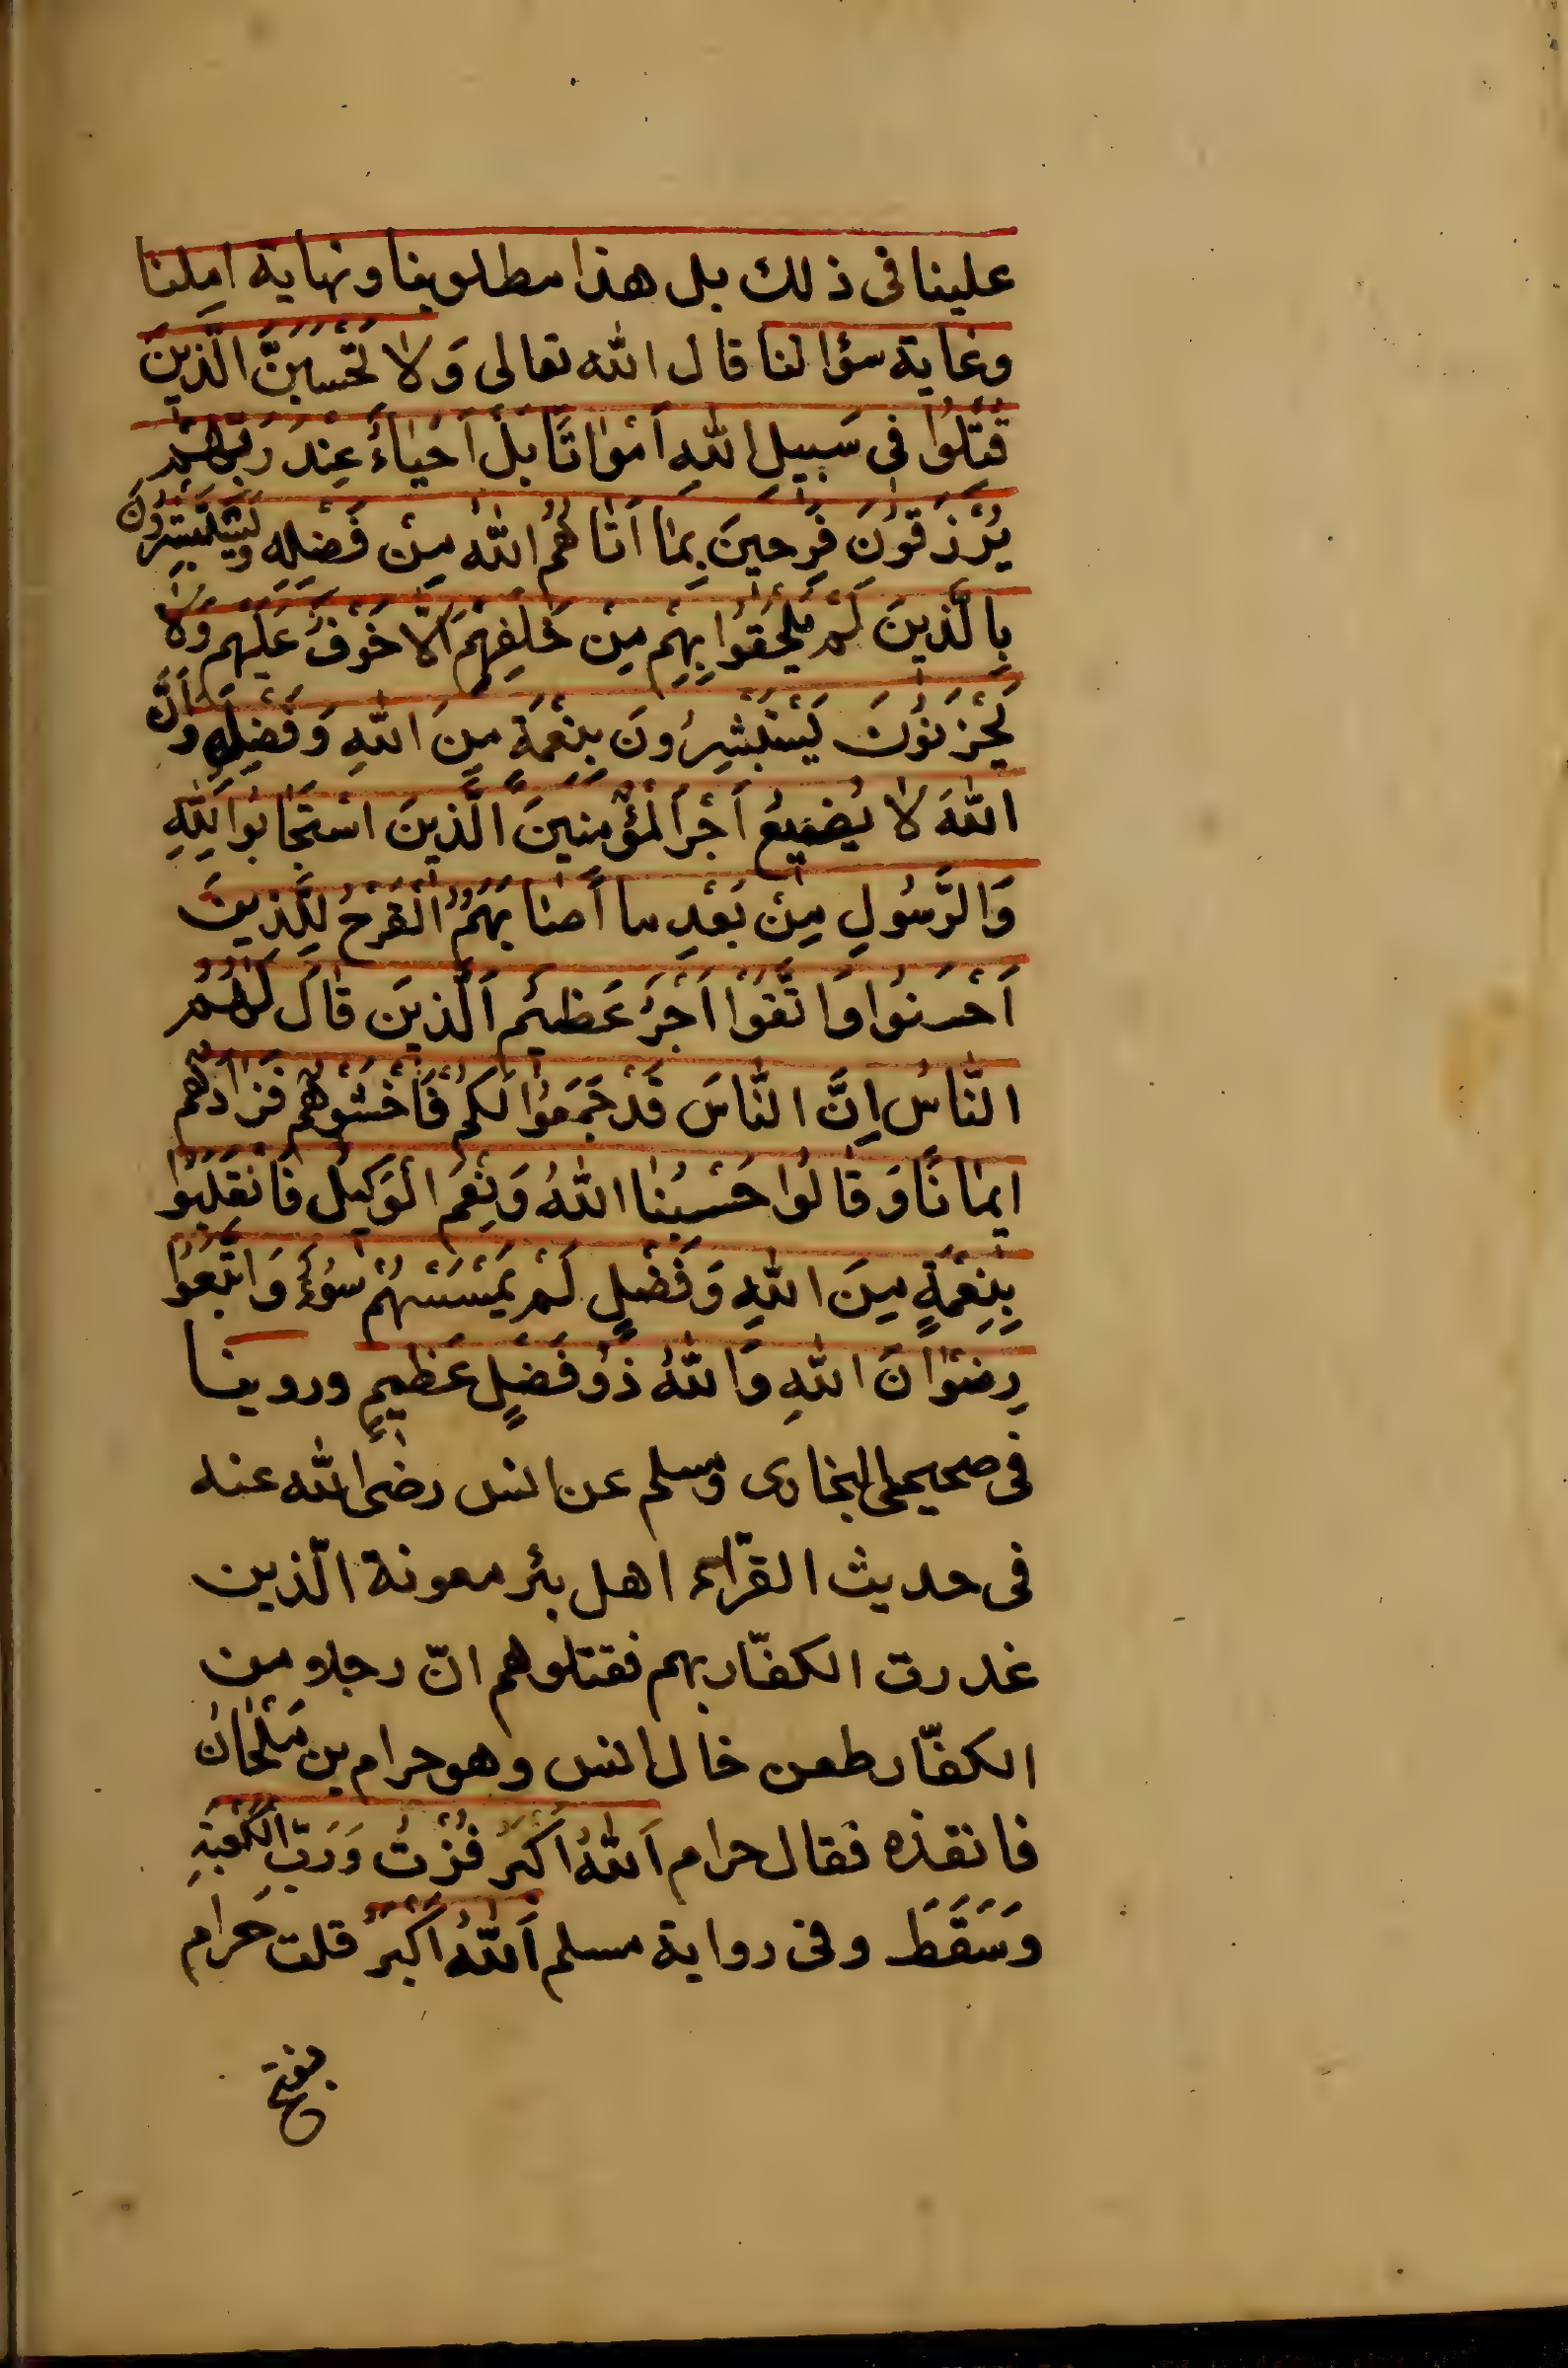 علينا فى ذلك بل هذا مطلوبنا ونهاية املنا
وغاية سؤالنا قال الله تعالى وَلَا تَحْسَبَنَّ الَّذِينَ
قُتِلُوا فِى سَبِيلِ اللّٰهِ اَمْوَاتًا بَلْ اَحْيَاءٌ عِنْدَ رَبِّهِمْ
يُرْزَقُونَ فَرِحِينَ بِمَا اٰتَاهُمُ اللّٰهُ مِنْ فَضْلِه وَيَسْتَبْشِرُونَ
بِالَّذِينَ لَمْ يَلْحَقُوا بِهِمْ مِنْ خَلْفِهِمْ اَلَّا خَوْفٌ عَلَيْهِمْ وَلَا
يَحْزَنُونَ يَسْتَبْشِرُونَ بِنِعْمَةٍ مِنَ اللّٰهِ وَفَضْلٍ وَاَنَّ
اللّٰهَ لَا يُضِيعُ اَجْرَ الْمُؤْمِنِينَ الَّذِينَ اسْتَجَابُوا لِلّٰهِ
وَالرَّسُولِ مِنْ بَعْدِ مَا اَصَابَهُمُ الْقَرْحُ لِلَّذِينَ
اَحْسَنُوا وَاتَّقَوْا اَجْرٌ عَظِيمٌ اَلَّذِينَ قَالَ لَهُمُ
النَّاسُ اِنَّ النَّاسَ قَدْ جَمَعُوا لَكُمْ فَاخْشَوْهُمْ فَزَادَهُمْ
ايمَانًا وَقَالُوا حَسْبُنَا اللّٰهُ وَنِعْمَ الْوَكِيلُ فَانْقَلَبُوا
بِنِعْمَةٍ مِنَ اللّٰهِ وَفَضْلٍ لَمْ يَمْسَسْهُمْ سُوءٌ وَاتَّبَعُوا
رِضْوَانَ اللّٰهِ وَاللّٰهُ ذُو فَضْلٍ عَظِيمٍ وروينا
فى صحيحى البخارى ومسلم عن انس رضى الله عنه
فى حديث القرّاء اهل بئر معونة الّذين
غدرت الكفّار بهم فقتلوهم انّ رجلا من
الكفّار طعن خال انس وهو حرام بن مَلْحَانُ
فانقذه فقال حرام اَللّٰهُ اَكْبَرُ فُزْتُ وَرَبِّ الْكَعْبَةِ
وَسَقَطَ وفى رواية مسلم اَللّٰهُ اَكْبَرُ قلت حَرام
بفتح